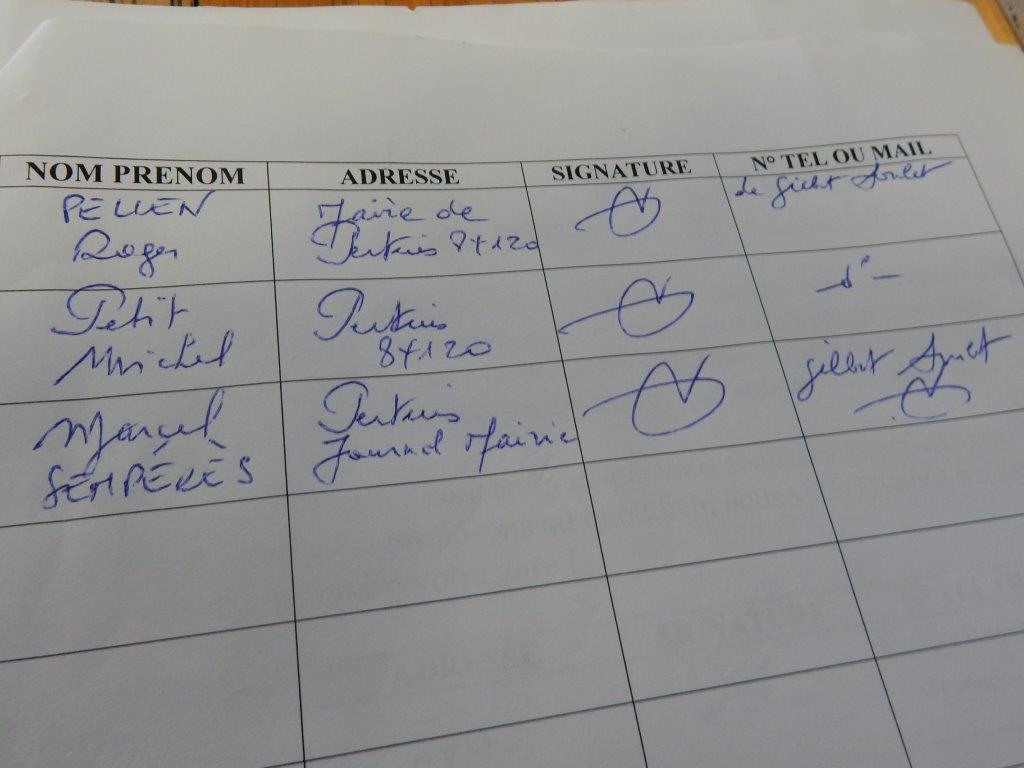 NOM PRENOM ADRESSE SIGNATURE N° TEL OU MAIL
PELLEN Mairie de de Gilbert Soulet
Roger Pertuis 84120
Petit Pertuis d°-
Michel 84120
Marcel Pertuis Gilbert Soulet
SEMPÉRÈS Journal Mairie